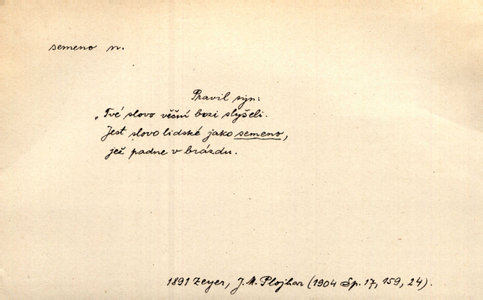 semeno n.
Pravil syn:
„Tvé slovo věční bozi slyšeli.
Jest slovo lidské jako semeno,
jež padne v brázdu.
1891 Zeyer, J. M. Plojhar (1904 Sp. 17, 159, 24).